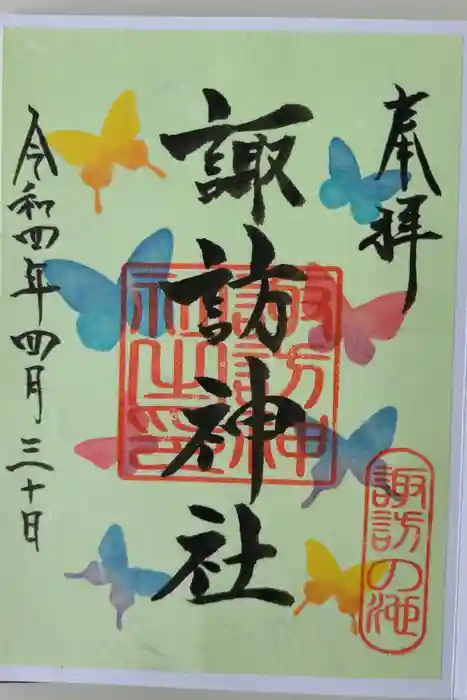 奉拝
諏訪神社
令和四年四月三十日
諏訪神社之印
諏訪の池